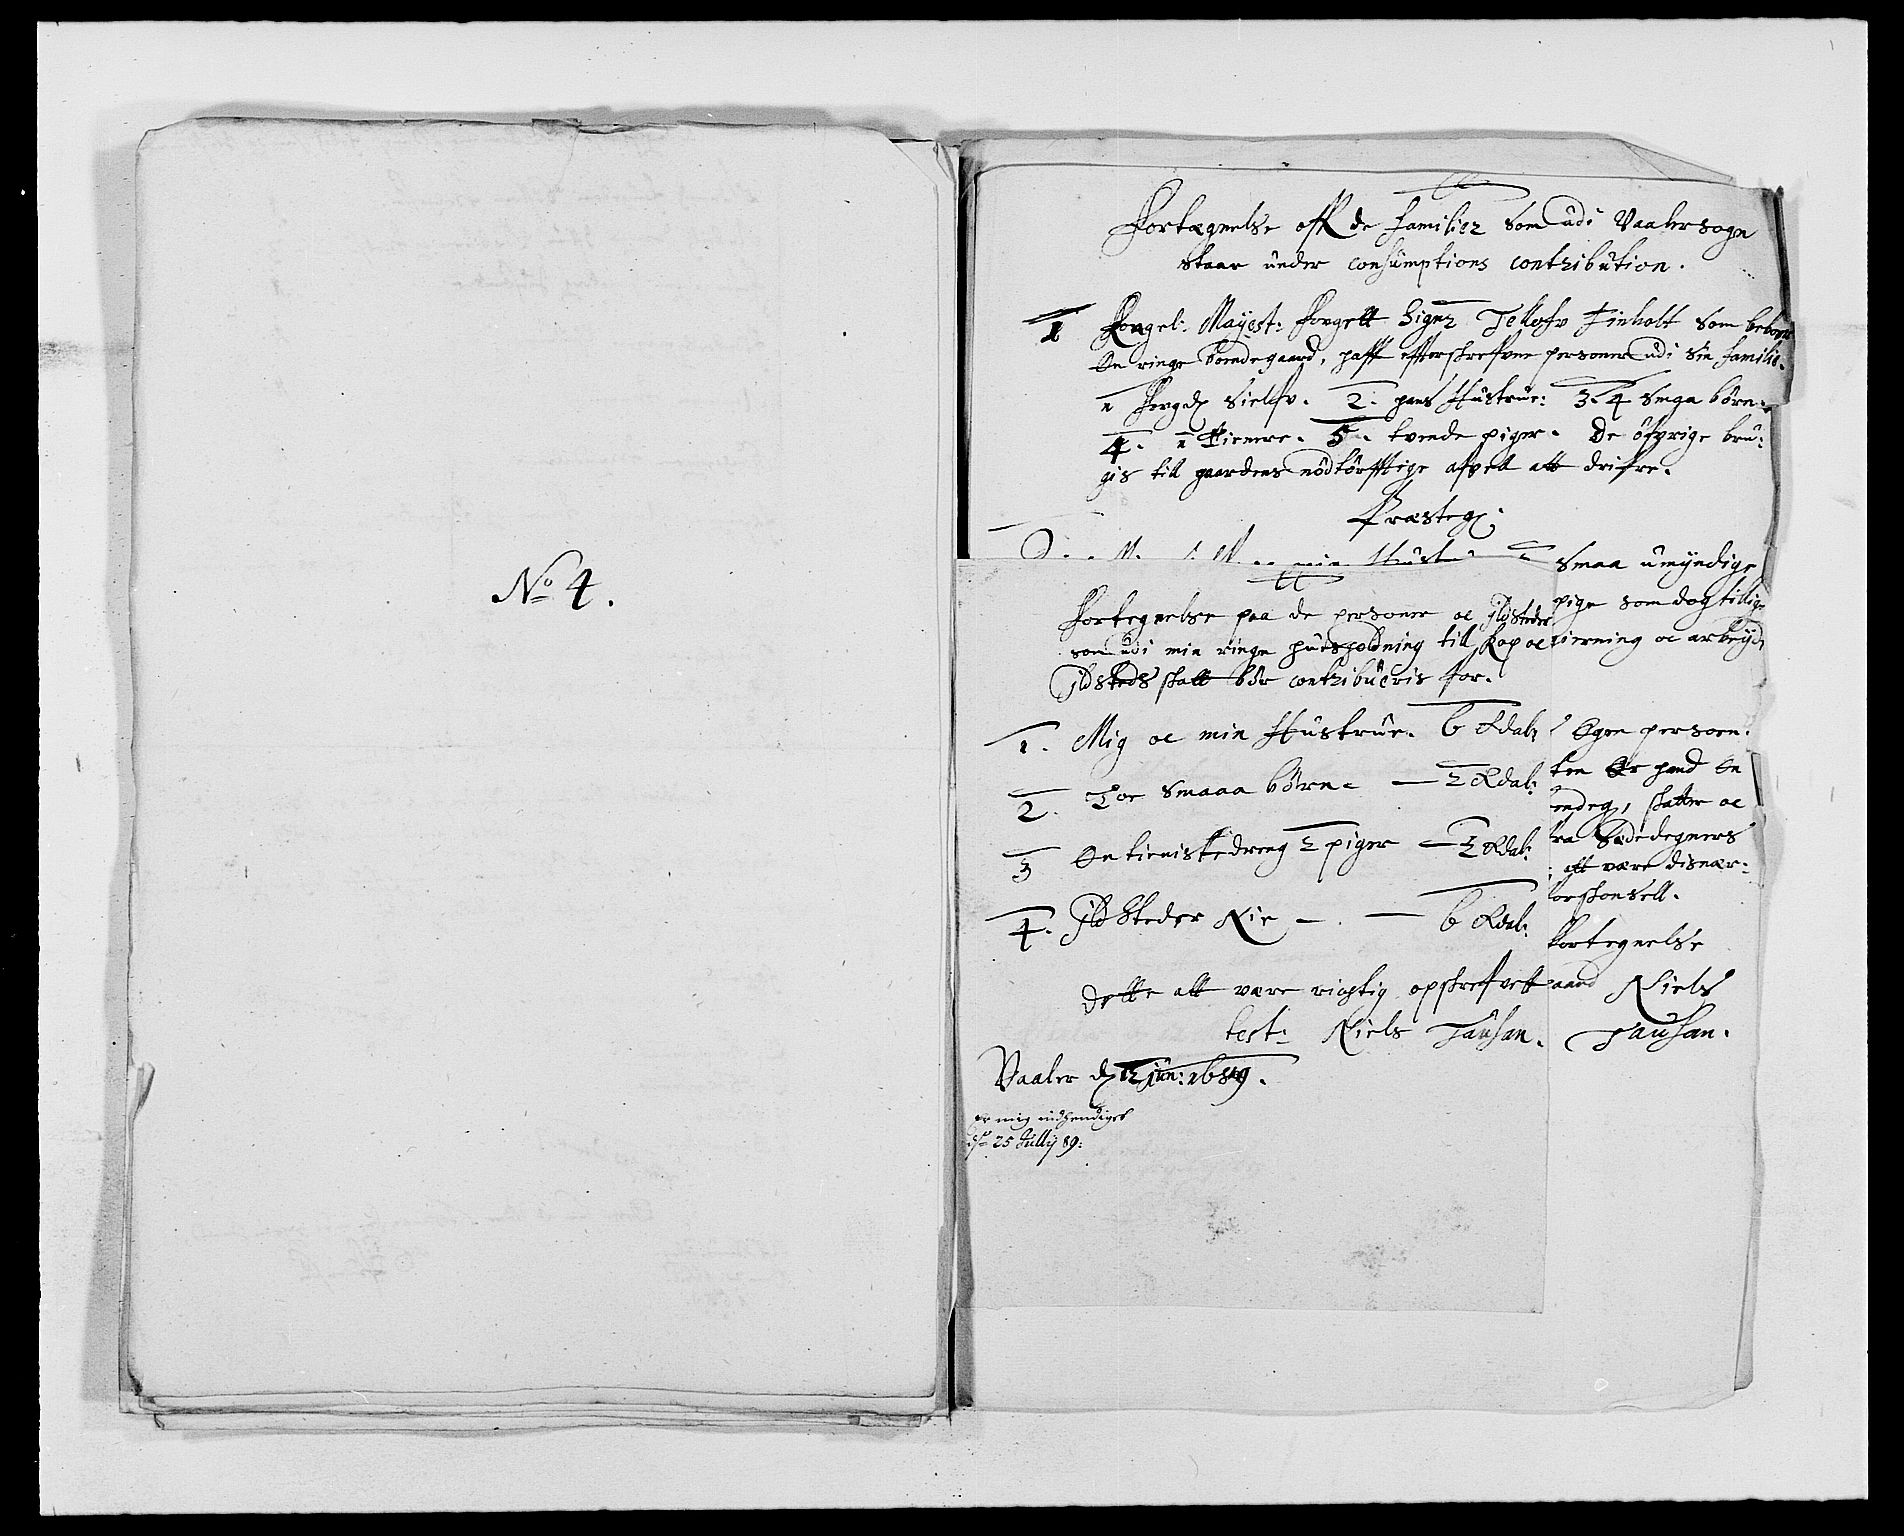 No 4.
Fortegnelse off de familier som udi Vaaler sogn
staar under consumptions contribution.
1 Kongel: Mayest: Fogett Signr Tellofv Finholt som beboer
En ringe bondegaard, haffr efterschrefvne personer udi sin familie.
1 Fogden sielfv. 2. hans Hustrue: 3. 4 smaa börn.
4. 1 Tienere. 5. tvende piger. De öfvrige bru:
gis till gaardens nödtörfftige afvell att drifve.
Præsteg:
smaa umyndige
pige som dog tillige
tierning oc arbeyd
Egen persoen:
ten Er hand En
endeg, schatter oc
ra Sædedegners
att være disnær:
orschonsell.
fortegnelse
aand Niels
Tausan.
Fortegnelse paa de personer oc Ildsteder
som udi min ringe huusholdning till Kop oc
Ildsteds schatt bör contribueris for.
1. Mig oc min Hustrue. 6 Rdal:
2. Toe smaaa börn. — 2 Rdal:
3 En tienistedreng 2 piger — 3 Rdal:
4. Ild Steder Nie — . — 6 Rdal:
Dette att være rigtig opschrefvett
test: Niels Tausan.
Vaaler d 12 jun: 1689.
er mig indhendiget
d 25 Jullij 89: